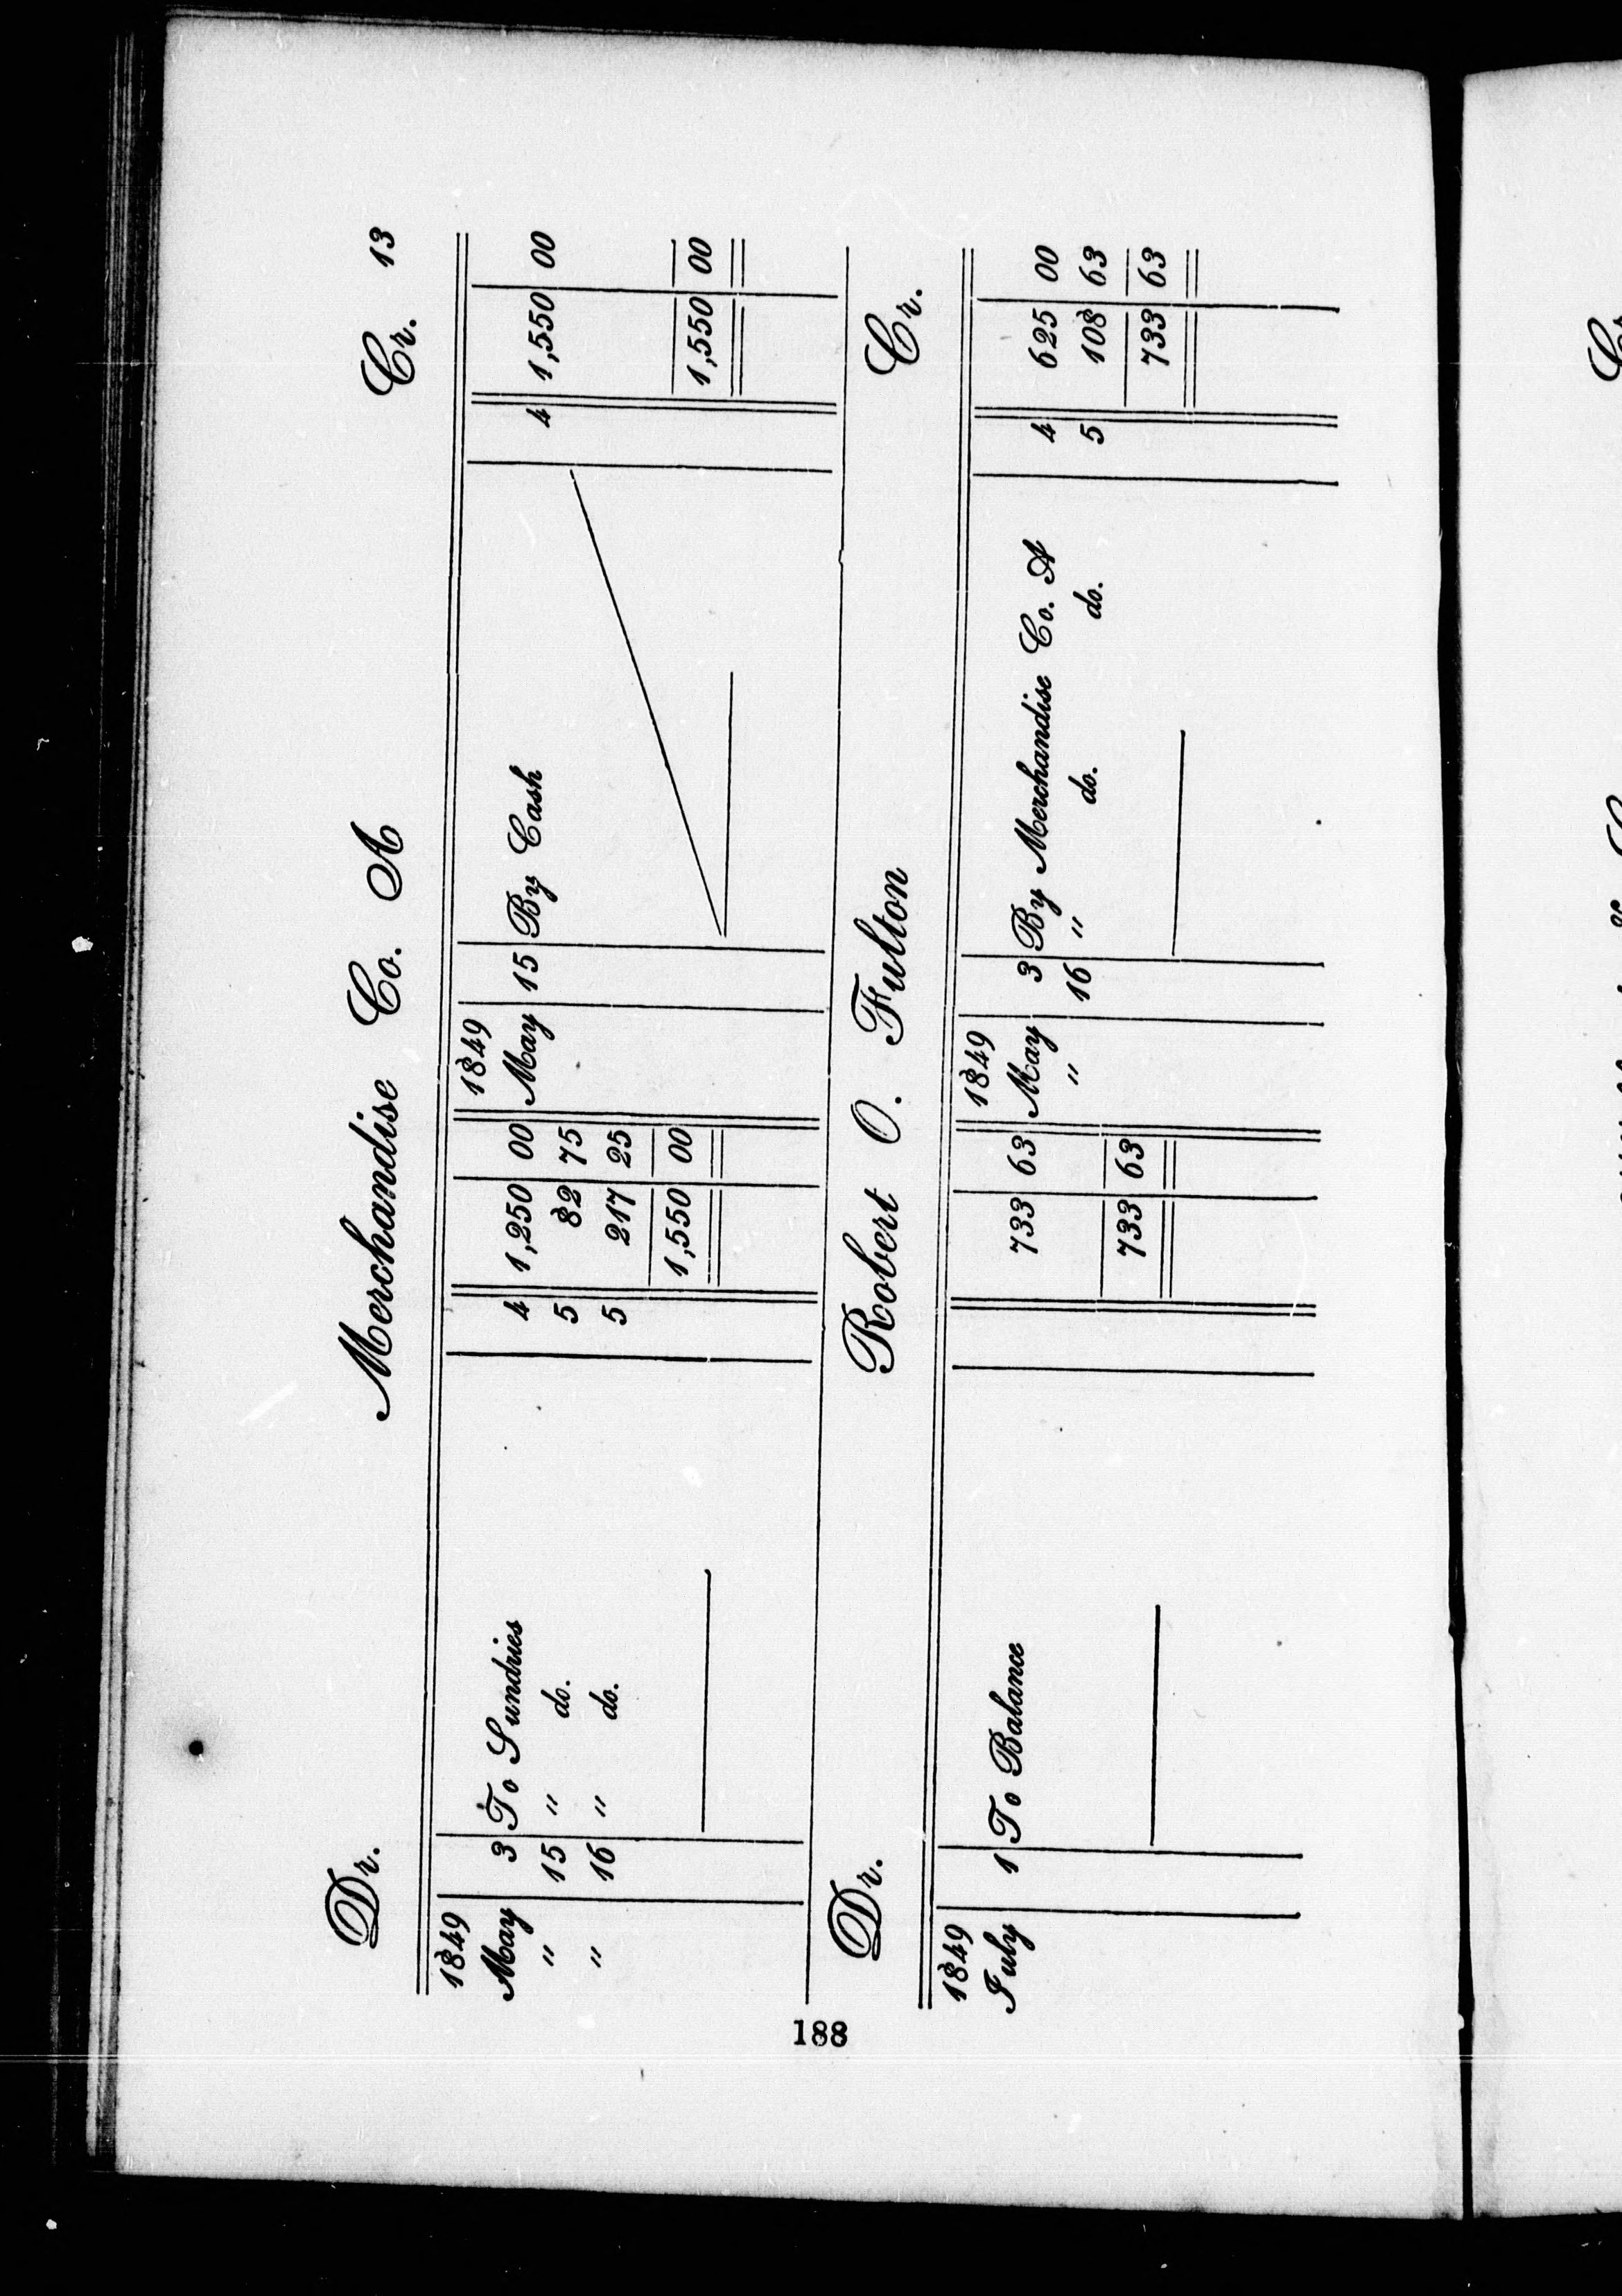 Dr. Merchandise Co. A Cr. 13
1849 1849
May 3 To Sundries 4 1,250 00 May 15 By Cash 4 1,550 00
" 15 " do. 5 82 75
" 16 " do. 5 217 25
1,550 00 1,550 00
Dr. Robert O. Fulton Cr.
1849 1849
July 1 To Balance 733 63 May 3 By Merchandise Co. A 4 625 00
" 16 " do. do. 5 108 63
733 63 733 63
188